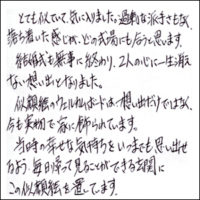 とても似ていて、気に入りました。過剰な派手さもなく、
落ち着いた感じが、どの式場にも合うと思います。
結婚式も無事に終わり、2人の心に一生残る
ない想い出となりました。
似顔絵のウェルカムボードは想い出だけではなく、
今も実物で家に飾られてます。
当時の幸せな気持ちをいつまでも思い出せ
るよう、毎日帰って見ることができる玄関に
この似顔絵を置してます。